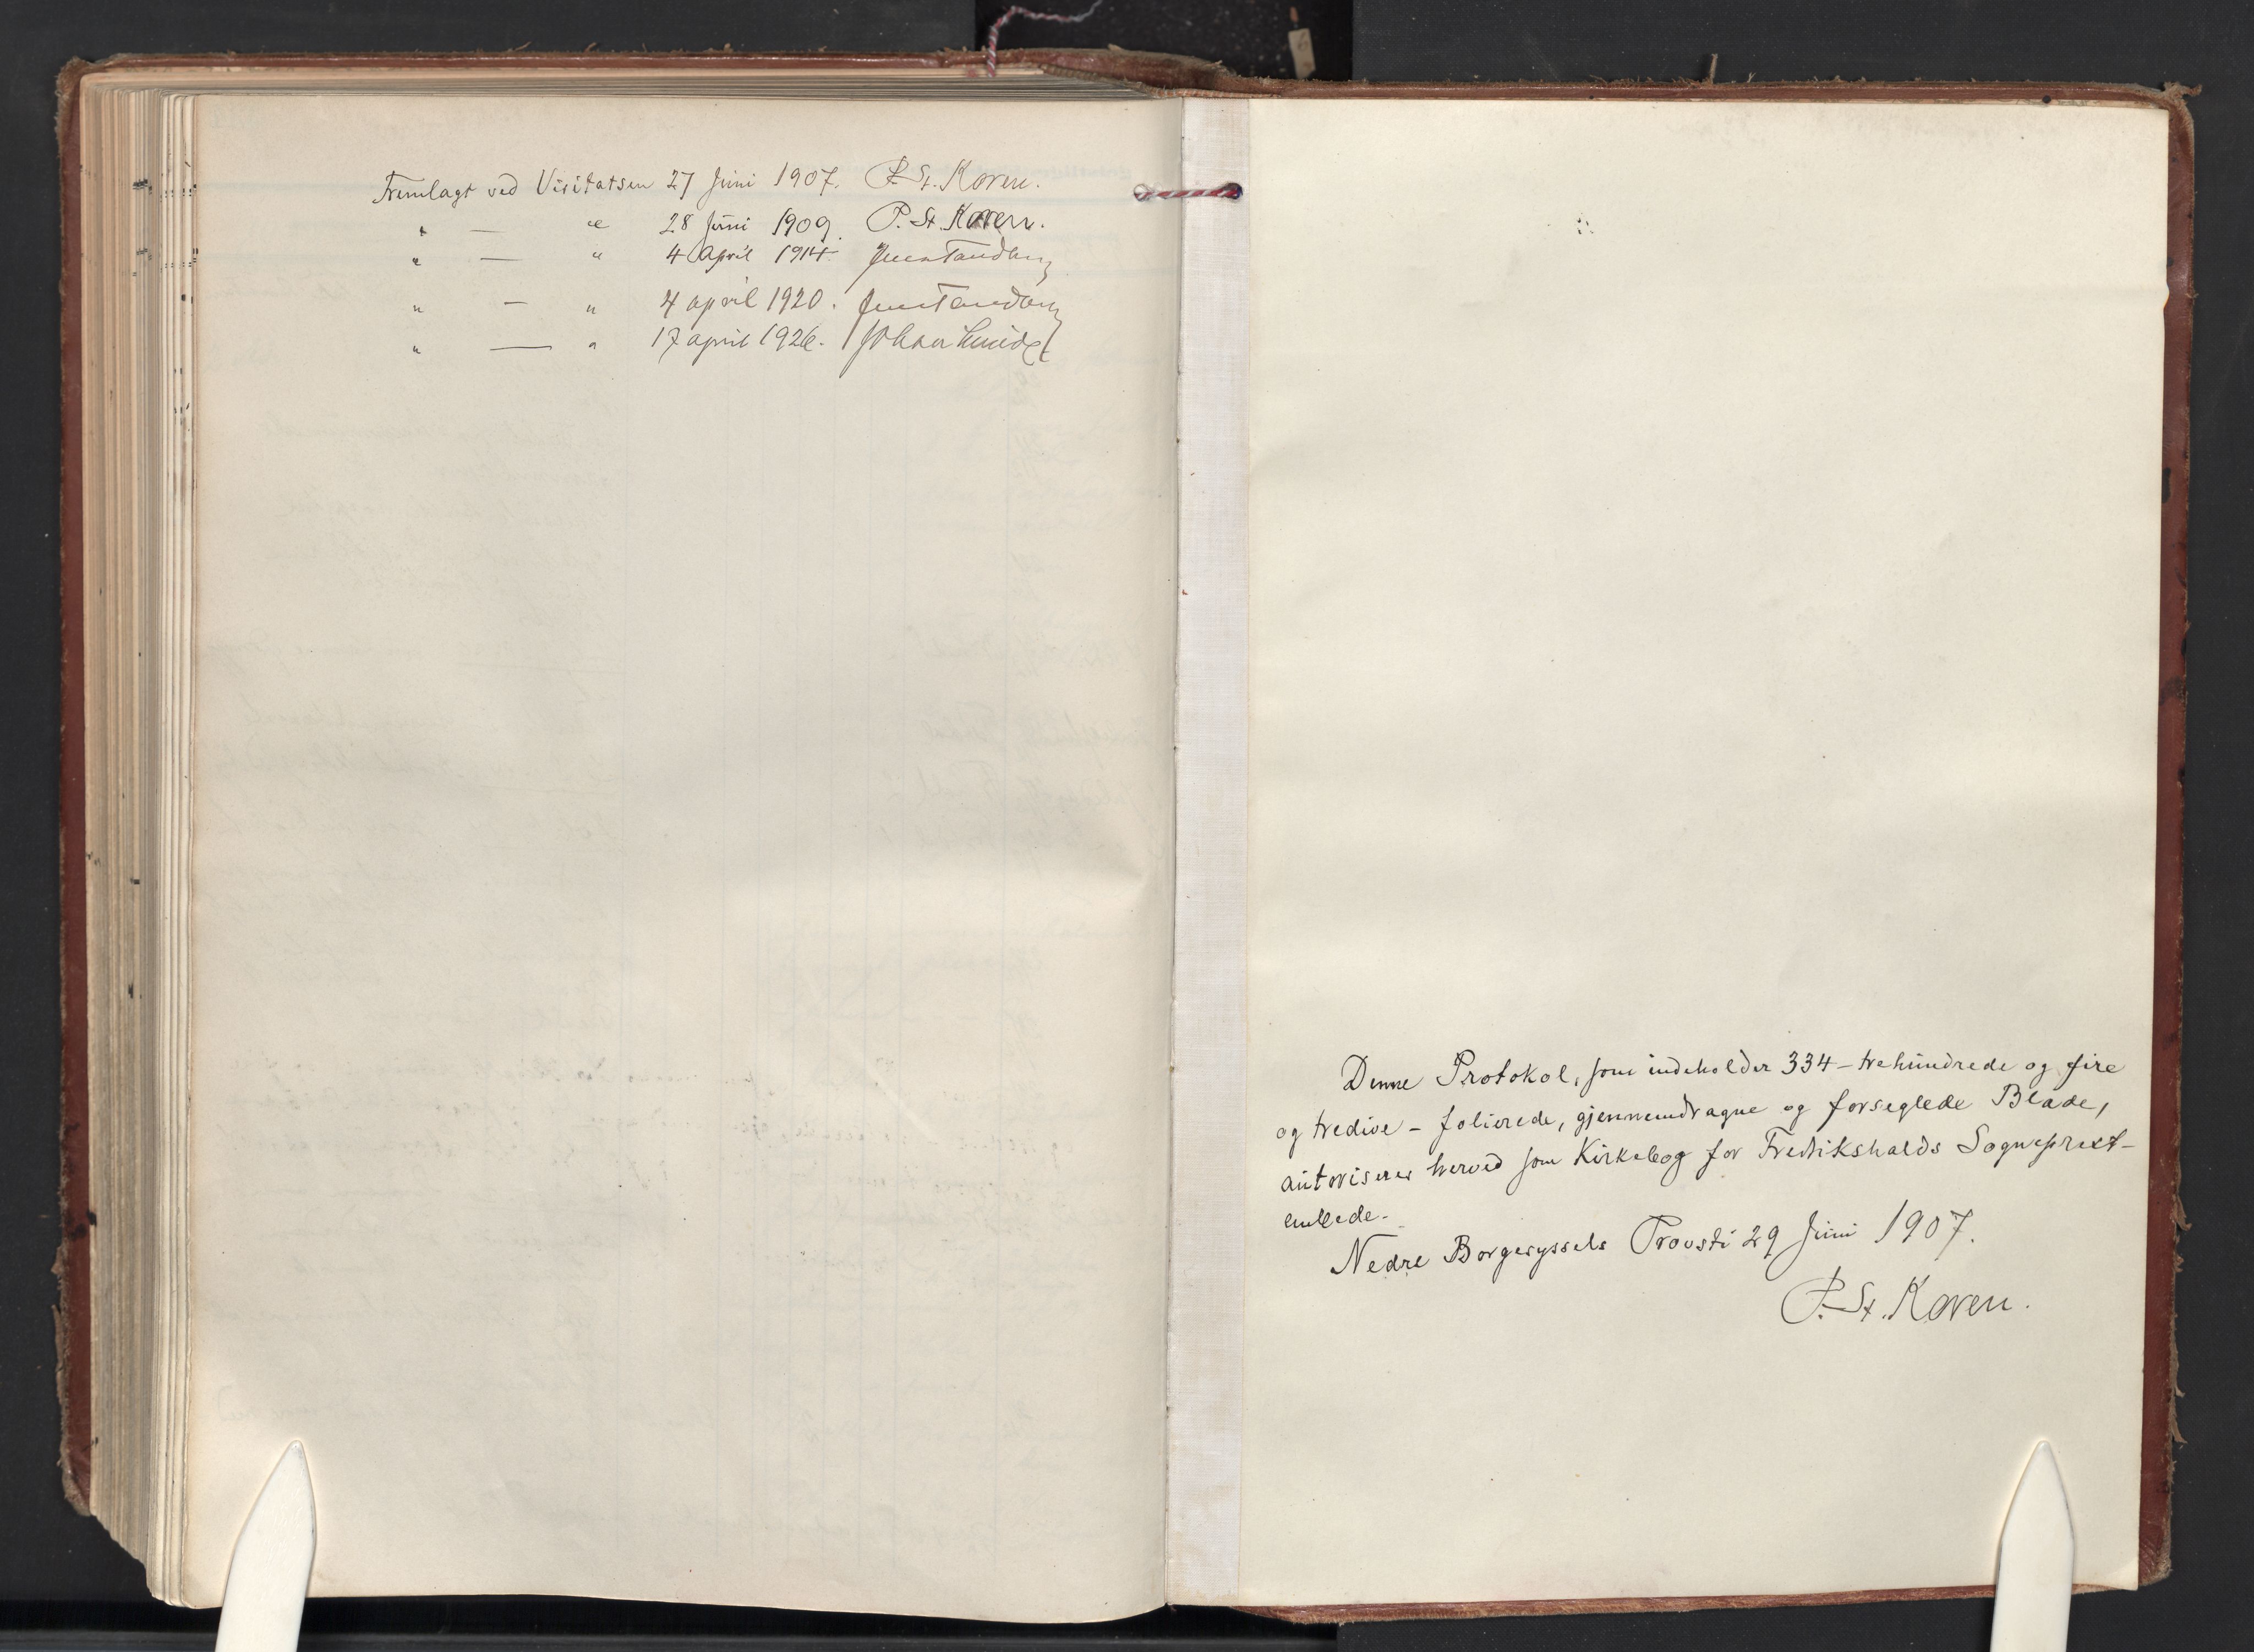 Fremlagt ved Visitatsen 27 Juni 1907. P. St. Koren.
" — " 28 Juni 1909. P. St. Koren.
" — " 4 April 1914 Jens Tandberg
" — " 4 april 1920. Jens Tandberg
" — " 17 april 1926. Johan Lunde
Denne Protokol, som indeholder 334 - trehundrede og fire
og tredive - folierede, gjennemdragne og forseglede Blade,
autoriseres herved som Kirkebog for Fredrikshalds Sogneprest-
embede.
Nedre Borgesyssels Provsti 29 Juni 1907.
P. St. Koren.